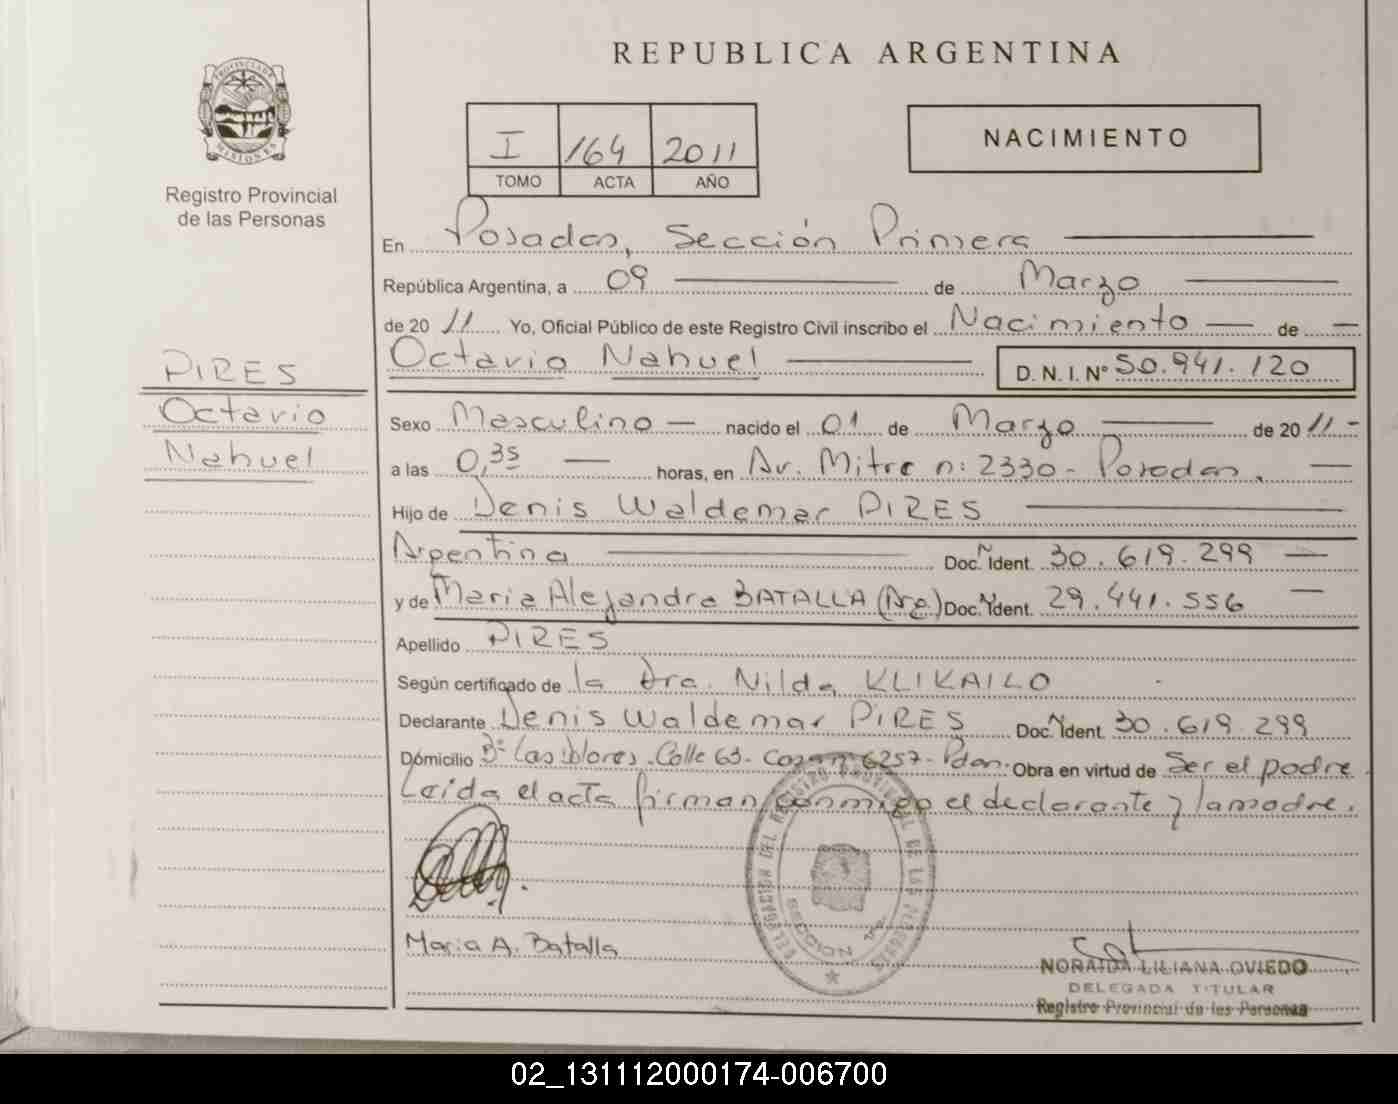 REPUBLICA ARGENTINA
PROVINCIA DE
MISIONES
Registro Provincial
de las Personas
I 164 2011
TOMO ACTA AÑO
NACIMIENTO
En Posadas, Sección Primera
República Argentina, a 09 de Marzo
de 2011 Yo, Oficial Público de este Registro Civil inscribo el Nacimiento de
Octavio Nahuel D. N. I. Nº 50.941.120
PIRES
Octavio
Nahuel
Sexo Masculino nacido el 01 de Marzo de 2011
a las 0,35 horas, en Av. Mitre n: 2330 - Posadas.
Hijo de Denis Waldemar PIRES
Argentina Doc. Ident. 30.619.299
y de Maria Alejandra BATALLA (Arg.) Doc. Ident. 29.441.556
Apellido PIRES
Según certificado de la Dra. Nilda KLIKAILO
Declarante Denis Waldemar PIRES Doc. Ident. 30.619.299
Domicilio Bº Las Flores. Calle 63 - Casa nº 6257 - Pdas. Obra en virtud de Ser el padre.
Leida el acta firman conmigo el declarante y la madre.
DELEGACION DEL REGISTRO PROVINCIAL DE LAS PERSONAS
SECCION 1ra.
Maria A. Batalla
NORAIDA LILIANA OVIEDO
DELEGADA TITULAR
Registro Provincial de las Personas
02_131112000174-006700